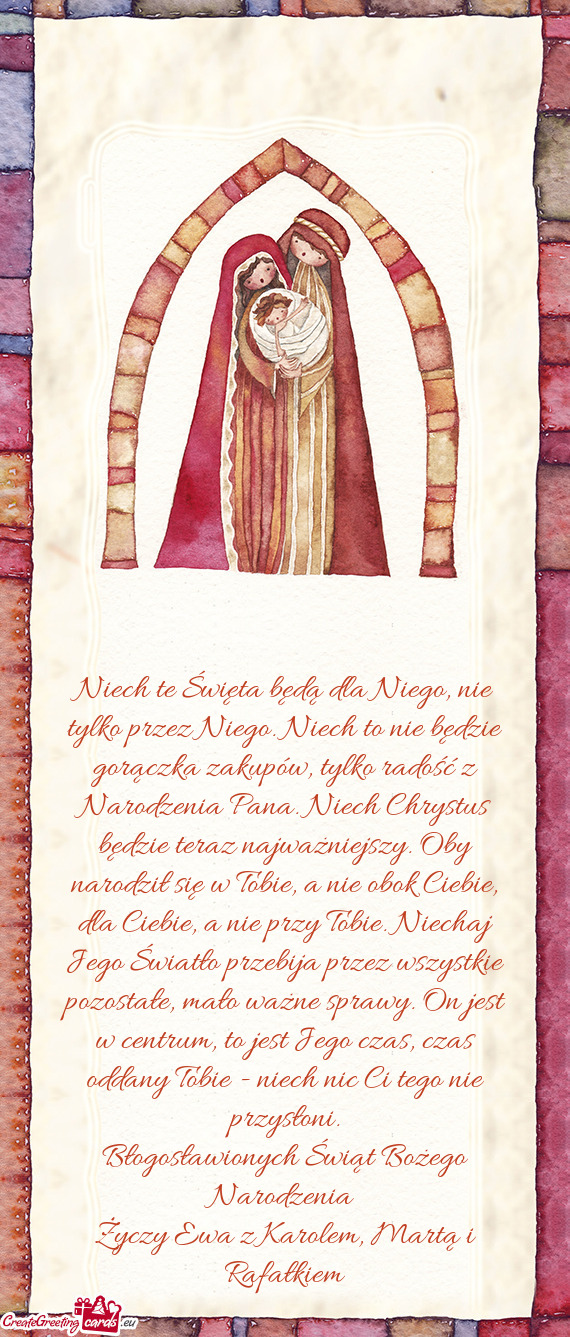 Niech te Święta będą dla Niego, nie
tylko przez Niego. Niech to nie będzie
gorączka zakupów, tylko radość z
Narodzenia Pana. Niech Chrystus
będzie teraz najważniejszy. Oby
narodził się w Tobie, a nie obok Ciebie,
dla Ciebie, a nie przy Tobie. Niechaj
Jego Światło przebija przez wszystkie
pozostałe, mało ważne sprawy. On jest
w centrum, to jest Jego czas, czas
oddany Tobie - niech nic Ci tego nie
przysłoni.
Błogosławionych Świąt Bożego
Narodzenia
Życzy Ewa z Karolem, Martą i
Rafałkiem
CreateGreeting cards .eu